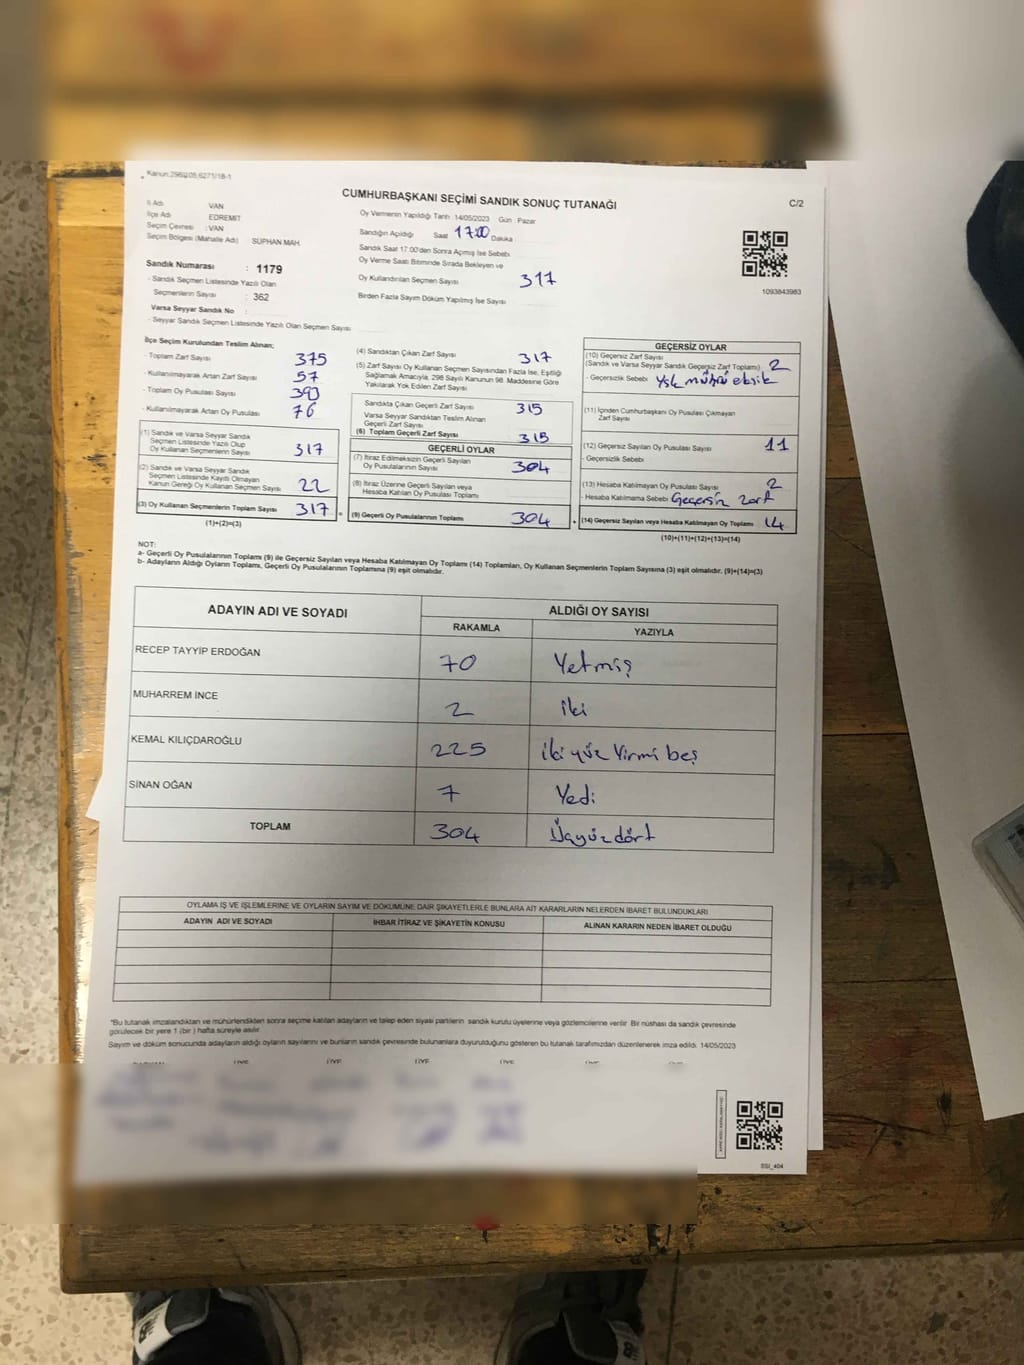 Kanun:298||105,6271/18-1
CUMHURBAŞKANI SEÇİMİ SANDIK SONUÇ TUTANAĞI
C/2
İl Adı VAN
İlçe Adı EDREMIT
Seçim Çevresi : VAN
Seçim Bölgesi (Mahalle Adı) SÜPHAN MAH.
Sandık Numarası : 1179
- Sandık Seçmen Listesinde Yazılı Olan
Seçmenlerin Sayısı : 362
Varsa Seyyar Sandık No :
- Seyyar Sandık Seçmen Listesinde Yazılı Olan Seçmen Sayısı
Oy Vermenin Yapıldığı Tarih : 14/05/2023 Gün : Pazar
Sandığın Açıldığı Saat 17:00 Dakika :
Sandık Saat 17:00'den Sonra Açılmış İse Sebebi
Oy Verme Saati Bitiminde Sırada Bekleyen ve
Oy Kullandırılan Seçmen Sayısı 317
Birden Fazla Sayım Döküm Yapılmış İse Sayısı
1093843983
İlçe Seçim Kurulundan Teslim Alınan;
- Toplam Zarf Sayısı 375
- Kullanılmayarak Artan Zarf Sayısı 57
- Toplam Oy Pusulası Sayısı
- Kullanılmayarak Artan Oy Pusulası 76
(1) Sandık ve Varsa Seyyar Sandık
Seçmen Listesinde Yazılı Olup
Oy Kullanan Seçmenlerin Sayısı 317
(2) Sandık ve Varsa Seyyar Sandık
Seçmen Listesinde Kayıtlı Olmayan
Kanun Gereği Oy Kullanan Seçmen Sayısı 22
(3) Oy Kullanan Seçmenlerin Toplam Sayısı 317 =
(1)+(2)=(3)
(4) Sandıktan Çıkan Zarf Sayısı 317
(5) Zarf Sayısı Oy Kullanan Seçmen Sayısından Fazla İse, Eşitliği
Sağlamak Amacıyla, 298 Sayılı Kanunun 98. Maddesine Göre
Yakılarak Yok Edilen Zarf Sayısı
Sandıkta Çıkan Geçerli Zarf Sayısı 315
Varsa Seyyar Sandıktan Teslim Alınan
Geçerli Zarf Sayısı
(6) Toplam Geçerli Zarf Sayısı 315
GEÇERLİ OYLAR
(7) İtiraz Edilmeksizin Geçerli Sayılan
Oy Pusulalarının Sayısı 304
(8) İtiraz Üzerine Geçerli Sayılan veya
Hesaba Katılan Oy Pusulası Toplamı
(9) Geçerli Oy Pusulalarının Toplamı 304 +
GEÇERSİZ OYLAR
(10) Geçersiz Zarf Sayısı
(Sandık ve Varsa Seyyar Sandık Geçersiz Zarf Toplamı) 2
- Geçersizlik Sebebi Ysk mührü eksik
(11) İçinden Cumhurbaşkanı Oy Pusulası Çıkmayan
Zarf Sayısı
(12) Geçersiz Sayılan Oy Pusulası Sayısı 11
- Geçersizlik Sebebi
(13) Hesaba Katılmayan Oy Pusulası Sayısı 2
- Hesaba Katılmama Sebebi Geçersiz zarf
(14) Geçersiz Sayılan veya Hesaba Katılmayan Oy Toplamı 14
(10)+(11)+(12)+(13)=(14)
NOT:
a- Geçerli Oy Pusulalarının Toplamı (9) ile Geçersiz Sayılan veya Hesaba Katılmayan Oy Toplamı (14) Toplamları, Oy Kullanan Seçmenlerin Toplam Sayısına (3) eşit olmalıdır. (9)+(14)=(3)
b- Adayların Aldığı Oyların Toplamı, Geçerli Oy Pusulalarının Toplamına (9) eşit olmalıdır.
ADAYIN ADI VE SOYADI ALDIĞI OY SAYISI
RAKAMLA YAZIYLA
RECEP TAYYİP ERDOĞAN 70 Yetmiş
MUHARREM İNCE 2 iki
KEMAL KILIÇDAROĞLU 225 iki yüz Yirmi beş
SİNAN OĞAN 7 Yedi
TOPLAM 304 Üçyüzdört
OYLAMA İŞ VE İŞLEMLERİNE VE OYLARIN SAYIM VE DÖKÜMÜNE DAİR ŞİKAYETLERLE BUNLARA AİT KARARLARIN NELERDEN İBARET BULUNDUKLARI
ADAYIN ADI VE SOYADI İHBAR İTİRAZ VE ŞİKAYETİN KONUSU ALINAN KARARIN NEDEN İBARET OLDUĞU
*Bu tutanak imzalandıktan ve mühürlendikten sonra seçime katılan adayların ve talep eden siyasi partilerin sandık kurulu üyelerine veya gözlemcilerine verilir. Bir nüshası da sandık çevresinde
görülecek bir yere 1 (bir ) hafta süreyle asılır.
Sayım ve döküm sonucunda adayların aldığı oyların sayılarını ve bunların sandık çevresinde bulunanlara duyurulduğunu gösteren bu tutanak tarafımızdan düzenlenerek imza edildi. 14/05/2023
ÜYE ÜYE ÜYE ÜYE
SSI_404